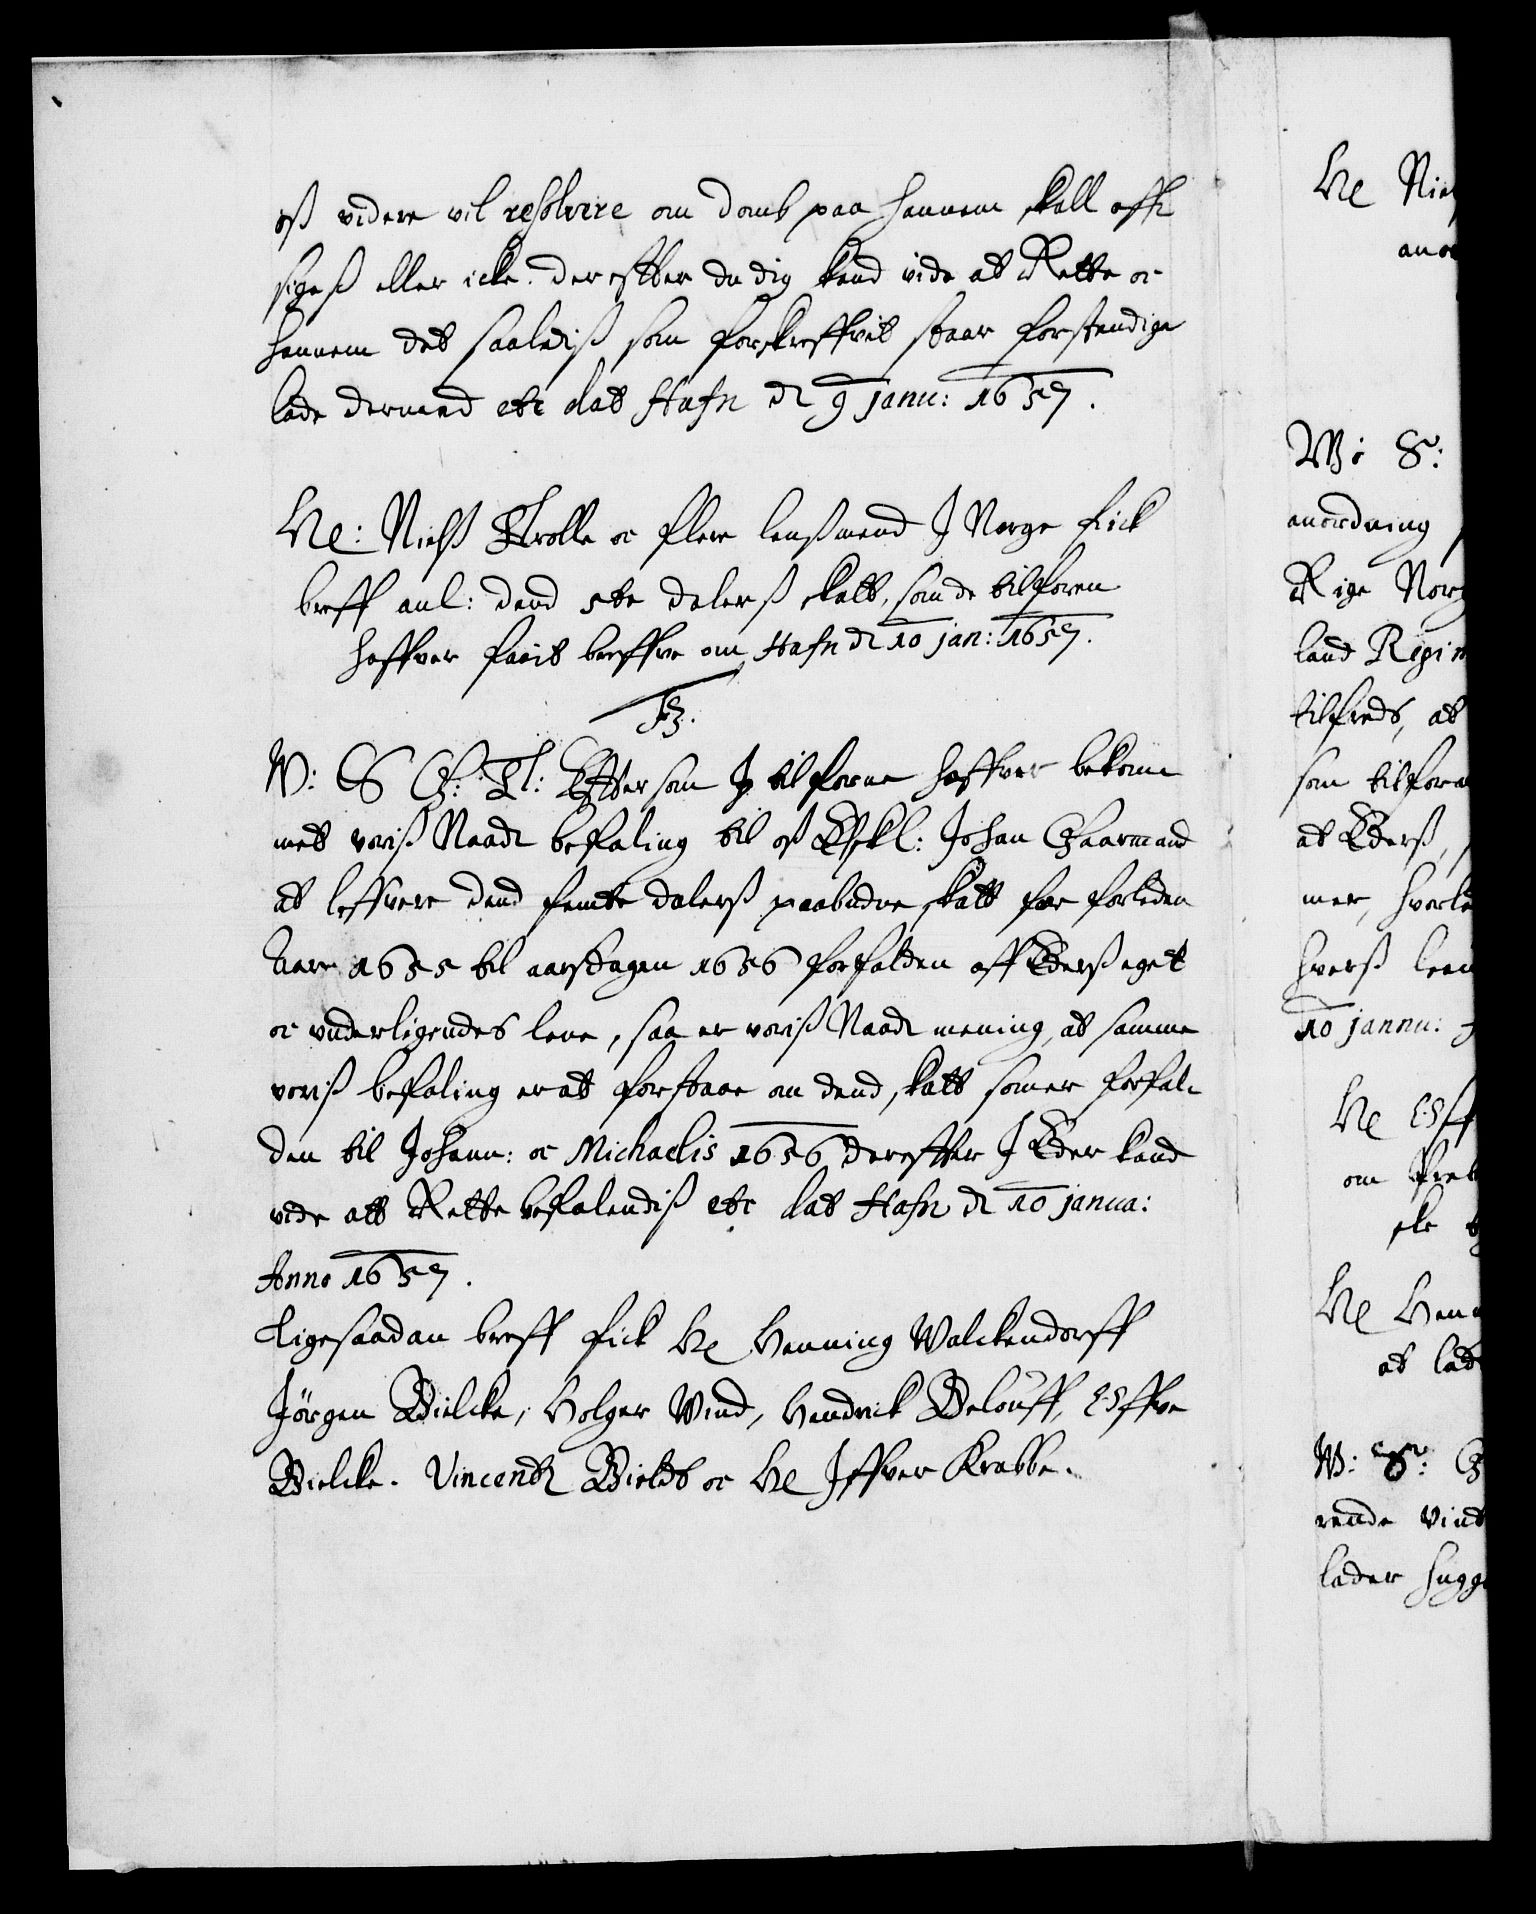 oß videre vil resolvere om domb paa hannem skall aff¬
sigeß eller icke. derefter du dig kand vide at Rette oc
hannem det saalediß som forskreffvit staar forstendige
lade dermed etc dat Hafn d 9 janu: 1657.
He: Nielß Trolle oc flere lenßmend J Norge fick
breff anl: dend 5te dalerß skatt, som de tilforen
haffver faait breffve om, Hafn d 10 jan: 1657.
F3.
W: S G: T: Efftersom J tilforne haffver bekom¬
met voriß Naadt befaling til oß Elskl: Johan Gaarmand
at leffvere dend femte dalerß paabudne skatt for forleden
Aar 1655 til aarsdagen 1656 forfalden aff Ederß eget
oc underligendes leene, saa er voriß Naadt mening, at samme
voriß befaling er at forstaae om dend skatt som er forfal¬
den til Johann: oc Michaelis 1656 derefter J Eder kand
vide att Rette befalendiß etc dat Hafn d 10 janua:
Anno 1657.
Ligesaadan breff fick He Henning Walckendorff
Jörgen Bielcke, Holger Wind, Hendrick Belouff, Offve
Bielcke. Vincentz Bieldt oc He Jffver Krabbe.
He Niel
anor
W: S:
anordning
Rige Norg
land Regim
tilfreds, at
som tilforn
at Ederß,
mer, hvorle
hverß leen
10 jannu:
He Off
om
He Henn
at lade
W: S: G
rende Vint
lader hugge